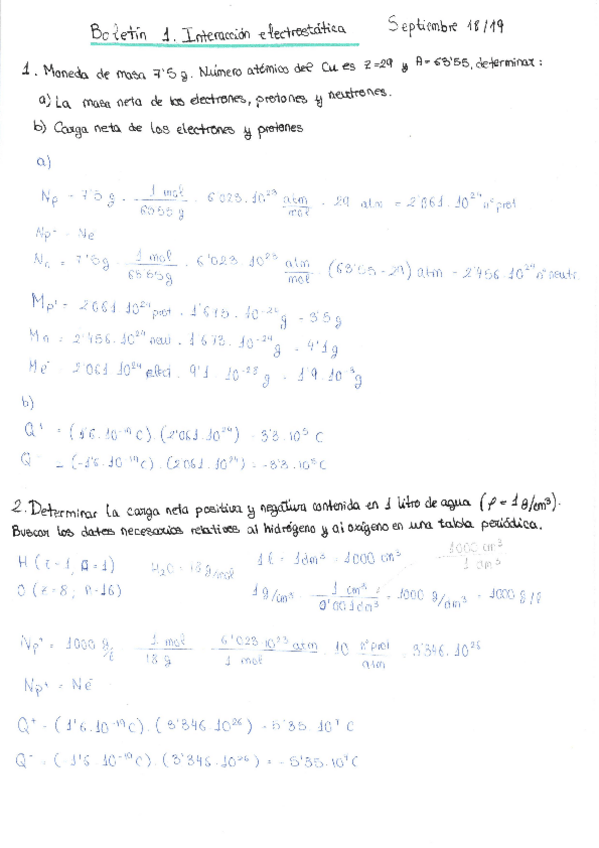 Boletín 1. Interacción electrostática Septiembre 18/19
1. Moneda de masa 7'5 g. Número atómico del Cu es Z=29 y A=63'55, determinar:
a) La masa neta de los electrones, protones y neutrones.
b) Carga neta de los electrones y protones
a)
Np = 7'5 g · 1 mol / 63'55 g · 6'023·10²³ atm/mol · 29 atm = 2'061·10²⁴ nº prot
Np⁺ = Ne
Nn = 7'5 g · 1 mol / 63'55 g · 6'023·10²³ atm/mol · (63'55-29) atm = 2'456·10²⁴ nº neutr.
Mp⁺ = 2'061·10²⁴ prot · 1'673·10⁻²⁴ g = 3'5 g
Mn = 2'456·10²⁴ neu · 1'673·10⁻²⁴ g = 4'1 g
Me⁻ = 2'061·10²⁴ elect · 9'1·10⁻²⁸ g = 1'9·10⁻³ g
b)
Q⁺ = (1'6·10⁻¹⁹ C)·(2'061·10²⁴) = 3'3·10⁵ C
Q⁻ = (-1'6·10⁻¹⁹ C)·(2'061·10²⁴) = -3'3·10⁵ C
2. Determinar la carga neta positiva y negativa contenida en 1 litro de agua (ρ = 1 g/cm³).
Buscar los datos necesarios relativos al hidrógeno y al oxígeno en una tabla periódica.
H (Z=1, A=1) H₂O = 18 g/mol 1 l = 1 dm³ = 1000 cm³ 1000 cm³ / 1 dm³
O (Z=8; A=16) 1 g/cm³ · 1 cm³ / 0'001 dm³ = 1000 g/dm³ = 1000 g/l
Np⁺ = 1000 g/l · 1 mol / 18 g · 6'023·10²³ atm / 1 mol · 10 nº prot / atm = 3'346·10²⁶
Np⁺ = Ne⁻
Q⁺ = (1'6·10⁻¹⁹ C)·(3'346·10²⁶) = 5'35·10⁷ C
Q⁻ = (-1'6·10⁻¹⁹ C)·(3'346·10²⁶) = -5'35·10⁷ C